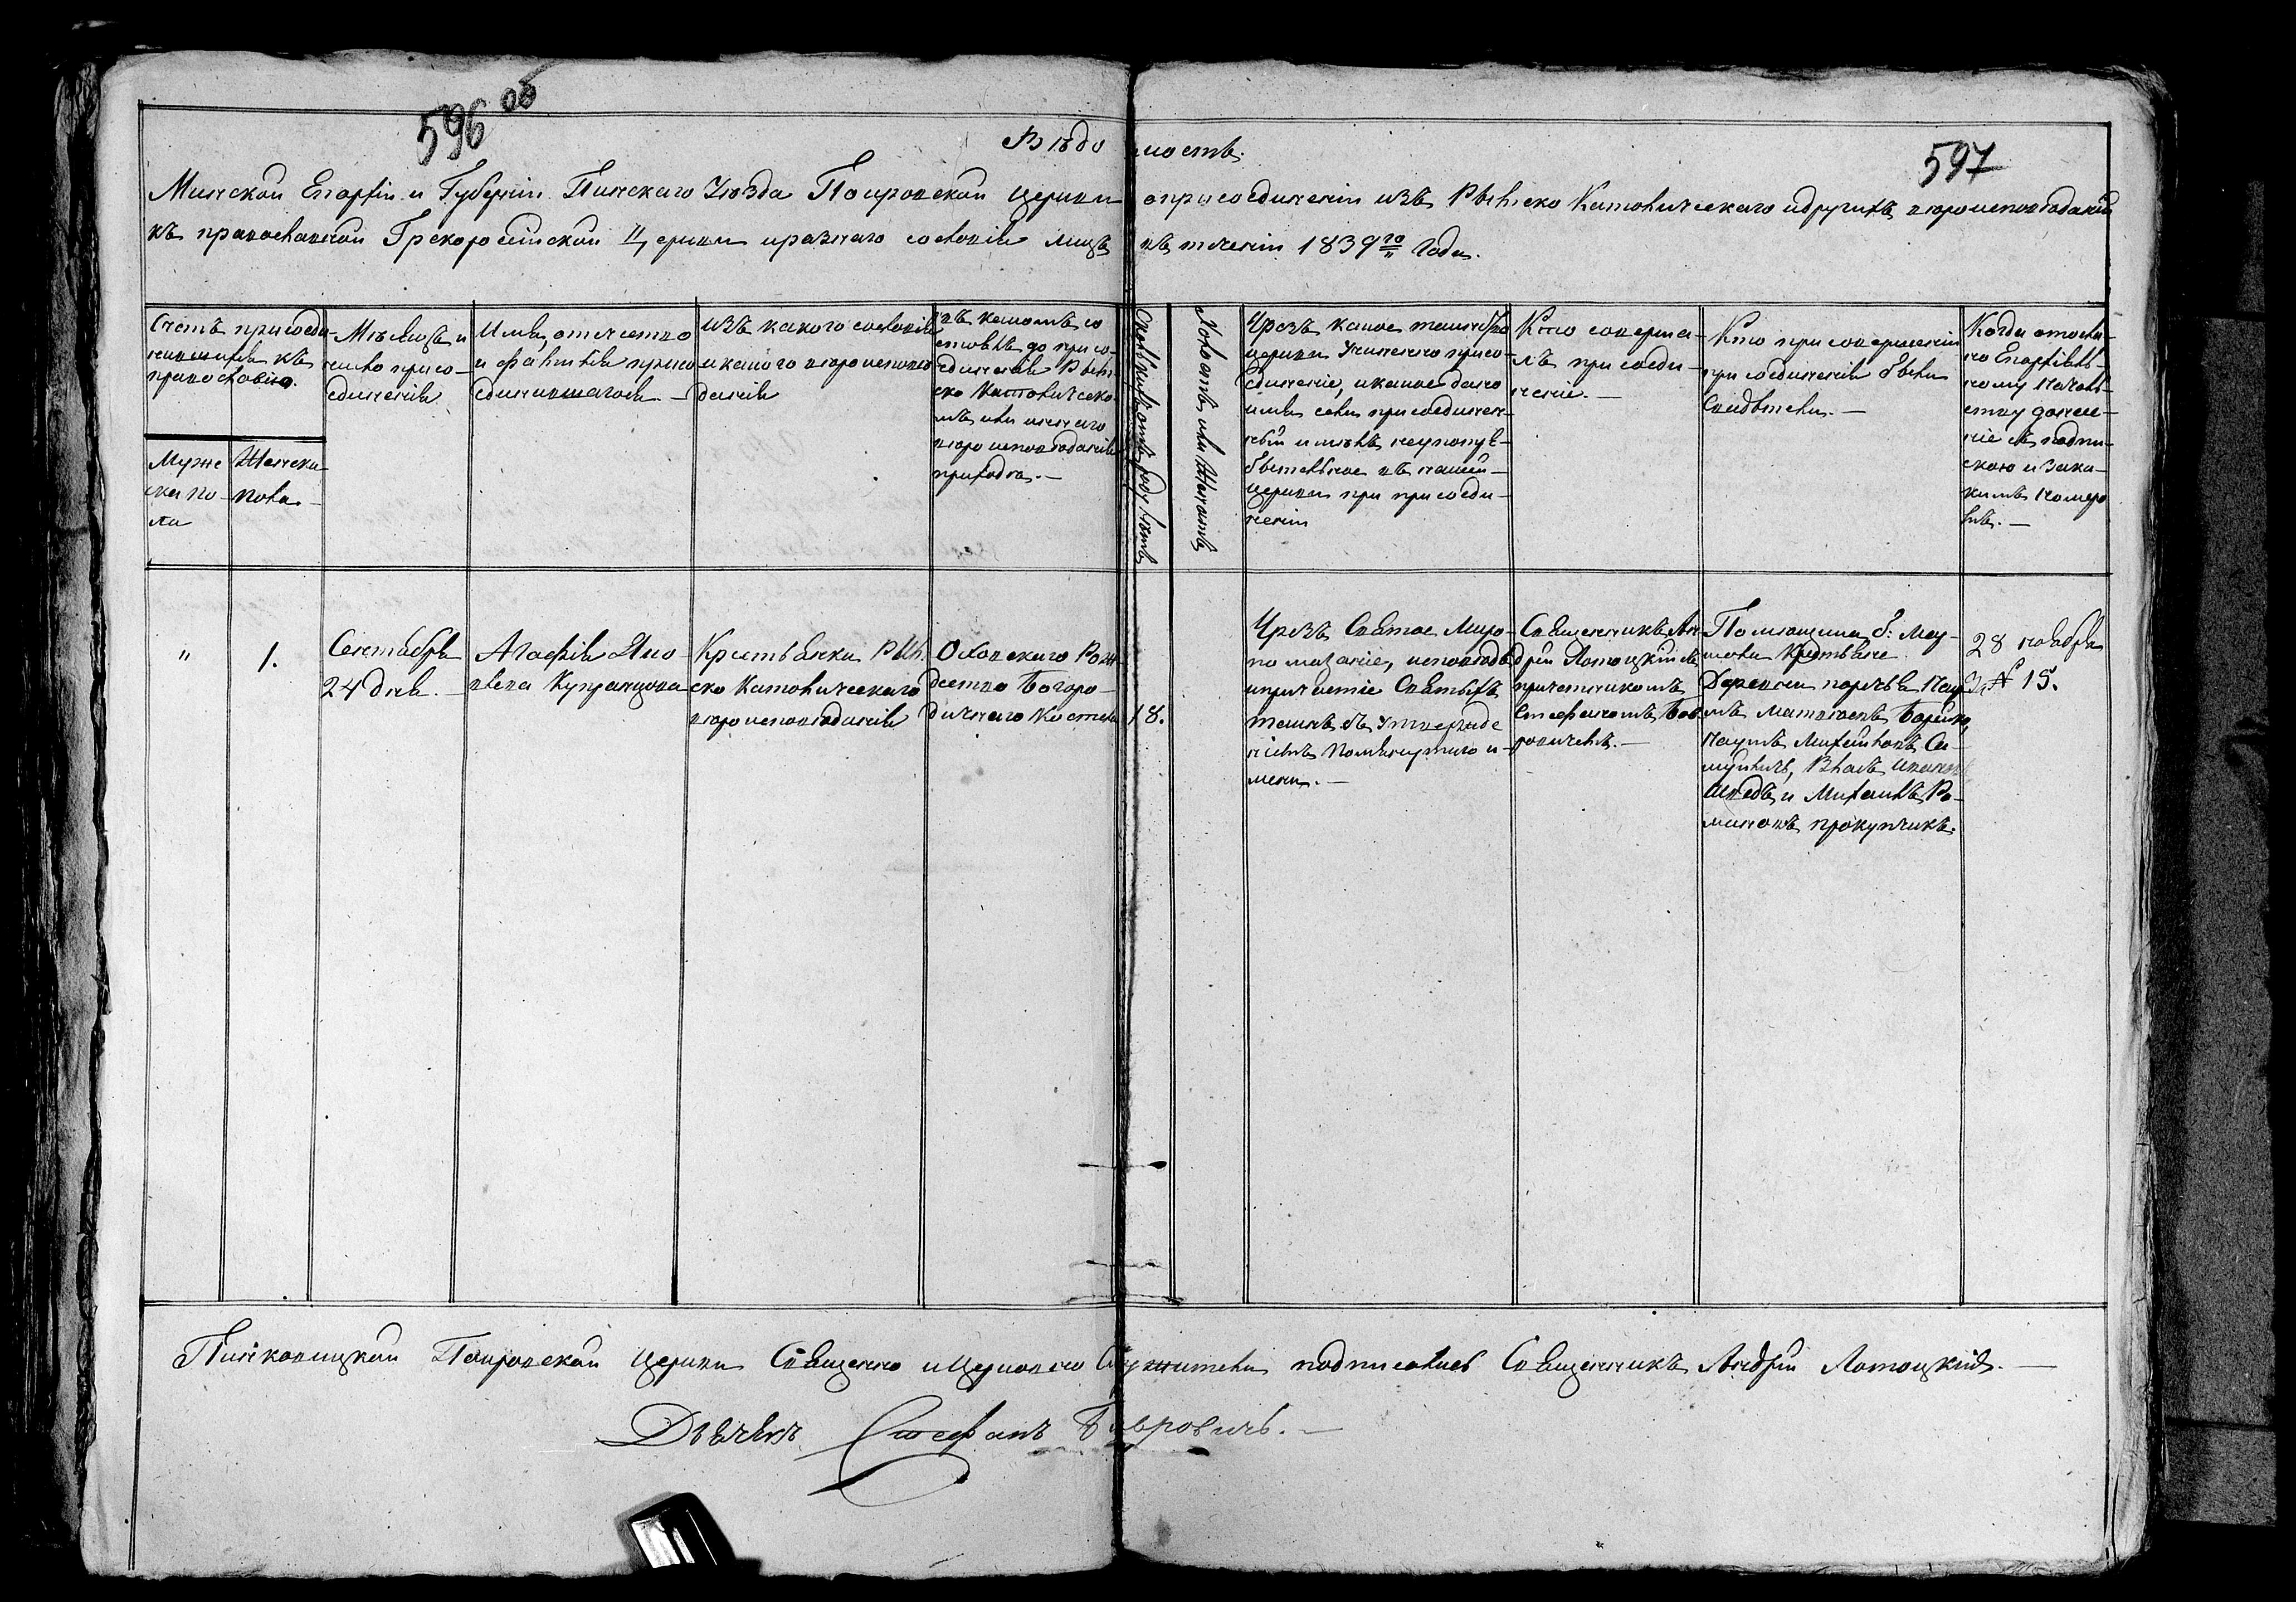 596 об
597
Вѣдомость.
Минской Епархіи и Губерніи Пинскаго Уѣзда Покровской церкви о присоединеніи изъ Римско Католическаго и другихъ вѣроисповѣданій
къ православной Грекороссійской Церкви и разнаго сословія лицъ въ теченіи 1839го Года.
Счетъ присоеди-
нившихся къ
православію.
Мужс
ска По-
ла
Женска
Пола
Мѣсяцъ и
число присо-
единенія
Имя, отечество
и фамилія присо
единившагося —
изъ какого сословія
и какого вѣроисповѣ
данія
въ какомъ со
стоялъ до присо-
единенія Рим-
ско Католическо-
мъ или инаго
вѣроисповѣданія
приходѣ. —
Сколькихъ отъ роду лѣтъ
Холостъ или Женатъ
Чрезъ какое таинство
церкви учинено присо-
единеніе, и какое дано
имя если присоединен-
ный имѣлъ неупотре-
бительное въ нашей
церкви при присоеди-
неніи
Кто соверша-
лъ присоеди-
неніе. —
Кто при совершеніи
присоединенія были
Свидѣтели. —
Когда отосла-
но Епархіаль-
ному Началь-
ству донесе-
ніе съ подпи-
скою и за ка-
кимъ номеро
мъ. —
„
1.
Сентября
24 дня. —
Агафія Яко
влева Купранцова
Крестьянка Рим.
ско Католическаго
вѣроисповѣданія
Оховскаго Рож
дество Богоро-
дичнаго Костела
18.
Чрезъ Святое Миро-
помазаніе, исповѣдь
и причастіе Святыхъ
таинъ съ утвержде
ніемъ помянутаго и-
мени. —
Священникъ Ан
дрій Лотоцкій съ
причетникомъ
Стефаномъ Бов
ровичемъ. —
Помѣщика
Крестьяне
Деревни
Матвѣевъ
Наумъ Михайловъ
Михаилъ Ро-
мановъ прокупчикъ.
28 ноября
За № 15.
Пинковицкой Покровской Церкви Священно и Церковно Служители подписались Священникъ Андрій Лотоцкій. —
Дьячекъ Стефанъ Бовровичъ. —